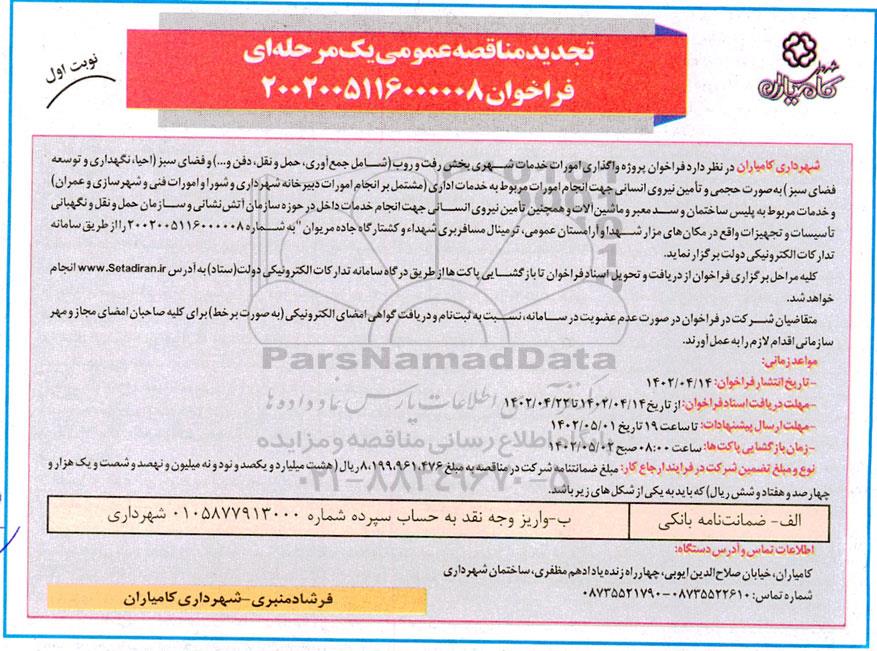 شهرداری
کامیاران
تجدید مناقصه عمومی یک مرحله‌ای
فراخوان ۲۰۰۲۰۰۵۱۱۶۰۰۰۰۰۸
نوبت اول
شهرداری کامیاران در نظر دارد فراخوان پروژه واگذاری امورات خدمات شهری بخش رفت و روب (شامل جمع‌آوری، حمل و نقل، دفن و...) و فضای سبز (احیا، نگهداری و توسعه
فضای سبز) به صورت حجمی و تأمین نیروی انسانی جهت انجام امورات مربوط به خدمات اداری (مشتمل بر انجام امورات دبیرخانه شهرداری و شورا و امورات فنی و شهرسازی و عمران)
و خدمات مربوط به پلیس ساختمان و سد معبر و ماشین‌آلات و همچنین تأمین نیروی انسانی جهت انجام خدمات داخل در حوزه سازمان آتش‌نشانی و سازمان حمل و نقل و نگهبانی
تأسیسات و تجهیزات واقع در مکان‌های مزار شهدا و آرامستان عمومی، ترمینال مسافربری شهداء و کشتارگاه جاده مریوان "به شماره ۲۰۰۲۰۰۵۱۱۶۰۰۰۰۰۸ را از طریق سامانه
تدارکات الکترونیکی دولت برگزار نماید.
کلیه مراحل برگزاری فراخوان از دریافت و تحویل اسناد فراخوان تا بازگشایی پاکت‌ها از طریق درگاه سامانه تدارکات الکترونیکی دولت (ستاد) به آدرس www.Setadiran.ir انجام
خواهد شد.
متقاضیان شرکت در فراخوان در صورت عدم عضویت در سامانه، نسبت به ثبت‌نام و دریافت گواهی امضای الکترونیکی (به صورت برخط) برای کلیه صاحبان امضای مجاز و مهر
سازمانی اقدام لازم را به عمل آورند.
مواعد زمانی:
-تاریخ انتشار فراخوان: ۱۴۰۲/۰۴/۱۴
-مهلت دریافت اسناد فراخوان: از تاریخ ۱۴۰۲/۰۴/۱۴ تا ۱۴۰۲/۰۴/۲۲
-مهلت ارسال پیشنهادات: تا ساعت ۱۹ تاریخ ۱۴۰۲/۰۵/۰۱
-زمان بازگشایی پاکت‌ها: ساعت ۰۸:۰۰ صبح ۱۴۰۲/۰۵/۰۲
نوع و مبلغ تضمین شرکت در فرایند ارجاع کار: مبلغ ضمانتنامه شرکت در مناقصه به مبلغ ۸،۱۹۹،۹۶۱،۴۷۶ ریال (هشت میلیارد و یکصد و نود و نه میلیون و نهصد و شصت و یک هزار و
چهارصد و هفتاد و شش ریال) که باید به یکی از شکل‌های زیر باشد.
الف- ضمانت‌نامه بانکی
ب-واریز وجه نقد به حساب سپرده شماره ۰۱۰۵۸۷۷۹۱۳۰۰۰ شهرداری
اطلاعات تماس و آدرس دستگاه:
کامیاران، خیابان صلاح‌الدین ایوبی، چهارراه زنده یاد ادهم مظفری، ساختمان شهرداری
شماره تماس: ۰۸۷۳۵۵۲۲۶۱۰-۰۸۷۳۵۵۲۱۷۹۰
فرشاد منبری-شهرداری کامیاران
ParsNamadData
مرکز فرآوری اطلاعات پارس نماد داده‌ها
پایگاه اطلاع رسانی مناقصه و مزایده
۰۲۱-۸۸۳۴۹۶۷۰-۵